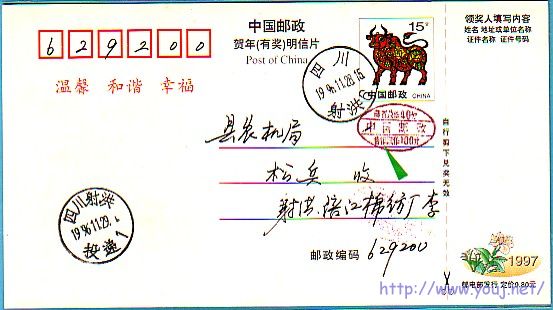 中国邮政
贺年(有奖)明信片
Post of China
629200
温馨 和谐 幸福
15分
中国邮政 CHINA
四川
1996.11.28.16
射洪
中国邮政
领奖人填写内容
姓名 地址或单位名称
证件名称 证件号码
自行剪下兑奖无效
县农机局
松兵 收
射洪涪江棉纺厂李
四川射洪
1996.11.29.
投递1
邮政编码 629200
1997
邮电部发行 定价0.80元
http://www.youj.net/